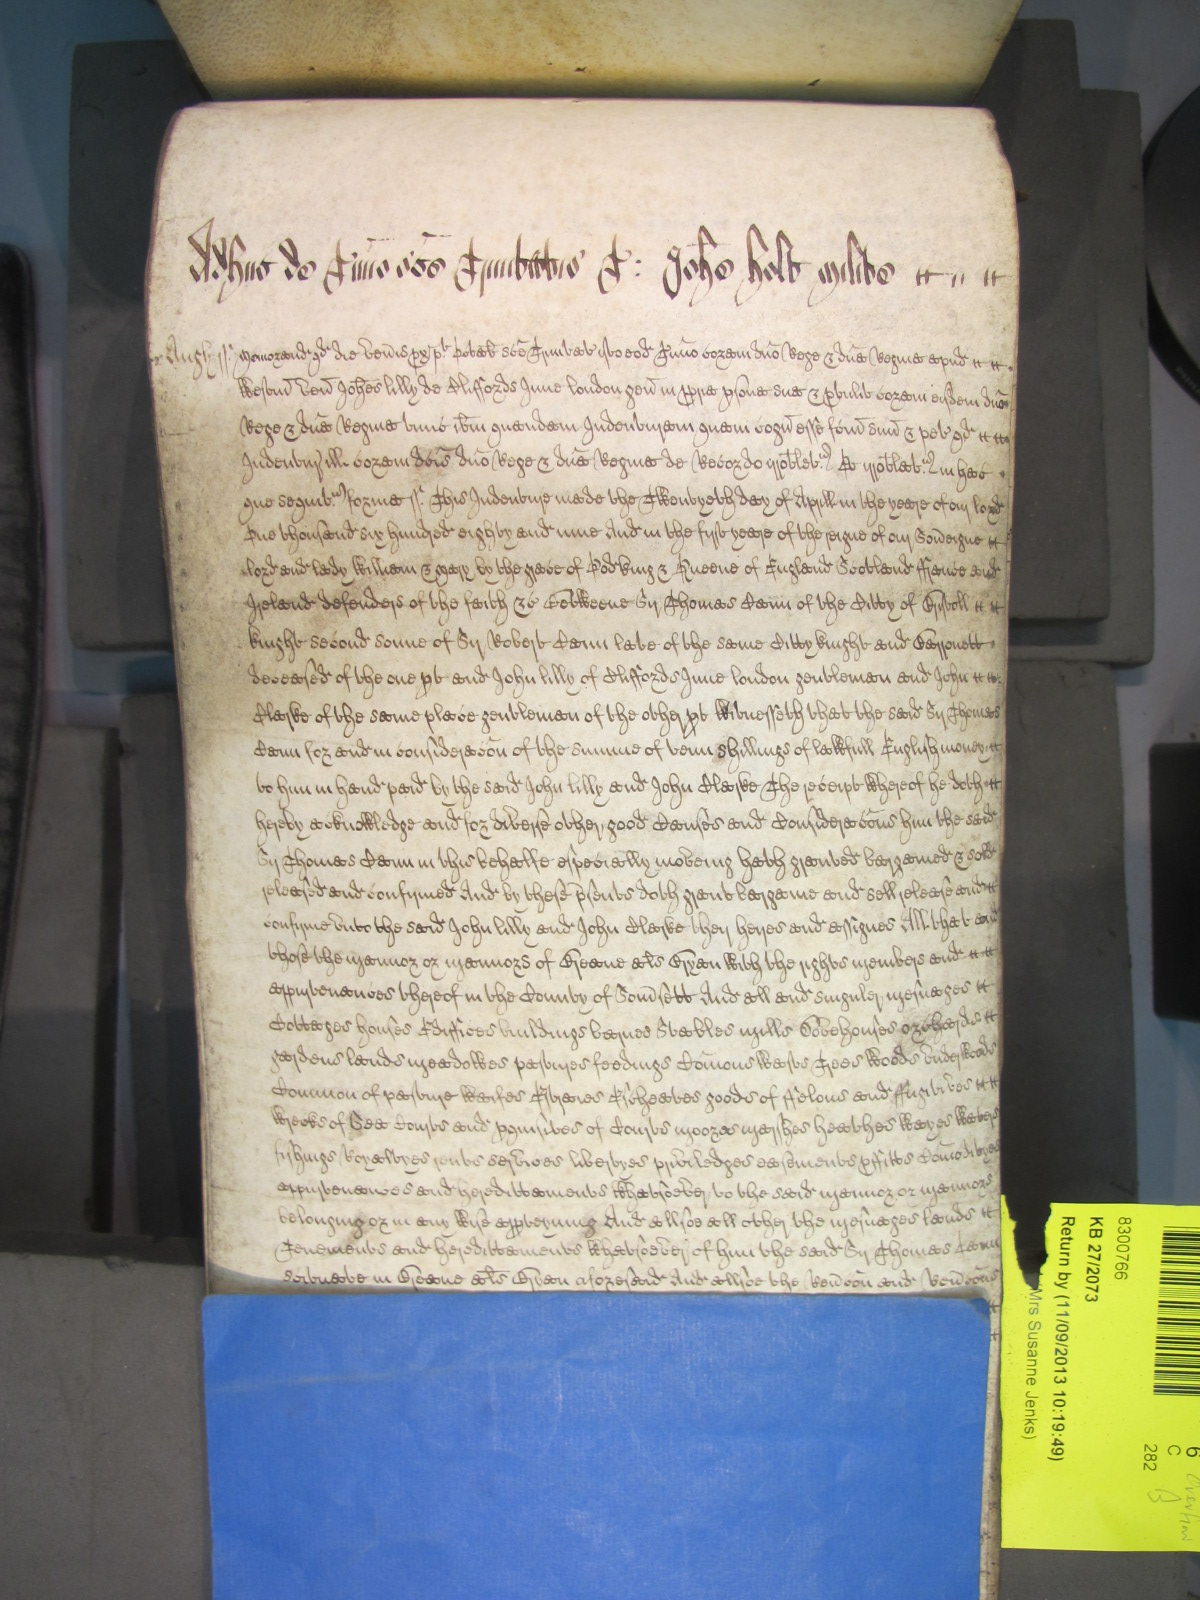 Adhuc de Tmio sce Trinitatis T: Johe Holt milite tt " tt
Angl ss. Memorand qd die veneris px pt octab sce Trinitat isto eod Tmio coram dno Rege & dna Regina apud tt tt
Westm ven Johes Lilly de Cliffords Inne London gen in ppria psona sua & ptulit coram eisdem dno
Rege & dna Regina tunc ibm quandam Indenturam quam cogn esse fcm suu & pet qd tt tt
Indentur ill coram dcis dno Rege & dna Regina de Recordo irrotlet.r Et irrotlat.r in hac
que sequit.r forma ss. This Indenture made the Twentyeth day of Aprill in the yeare of our Lord
One thousand six hundred eighty and nine And in the first yeare of the reigne of our Soveigne tt
Lord and Lady William & Mary by the grace of God King & Queene of England Scotland ffrance and
Ireland defenders of the faith &c Betweene Sr Thomas Cann of the Citty of Bristoll tt tt
knight second sonne of Sr Robert Cann late of the same Citty knight and Barronett
deceased of the one pt and John Lilly of Cliffords Inne London gentleman and John tt tt
Clarke of the same place gentleman of the other pt Witnesseth that the said Sr Thomas
Cann for and in consideracon of the summe of tenn shillings of lawfull English money tt
to him in hand paid by the said John Lilly and John Clarke The receipt whereof he doth tt
hereby acknowledge and for diverse other good Causes and Consideracons him the said
Sr Thomas Cann in this behalfe especially moveing hath graunted bargained & sold
released and confirmed And by these psents doth grant bargaine and sell release and tt
confirme unto the said John Lilly and John Clarke their heires and assignes All that and
those the mannor or mannors of Breane als Bryan with the rights members and tt tt
appurtenances thereof in the County of Somsett And all and singuler messuages tt
Cottages houses Ediffices buildings barnes Stables mills Dovehouses orchards tt
gardens lands meadowes pastures feedings Comons Wasts Trees Woods underwoods
Common of pasture Waifes Estraies Escheates goods of ffelons and ffugitives tt tt
Wrecks of Sea Courts and pquisites of Courts moores marshes heathes Wayes Waters
fishings Royaltyes rents services libertyes priviledges easements pfitts Comodityes
appurtenances and hereditaments whatsoever to the said mannor or mannors
belonging or in any wise apperteyning And allsoe all other the messuages lands tt
Tenements and hereditaments whatsoever of him the said Sr Thomas Cann
scituate in Breane als Bryan aforesaid And allsoe the Revcon and Revcons
8300766
KB 27/2073
Return by (11/09/2013 10:19:49)
(Mrs Susanne Jenks)
6
C
282